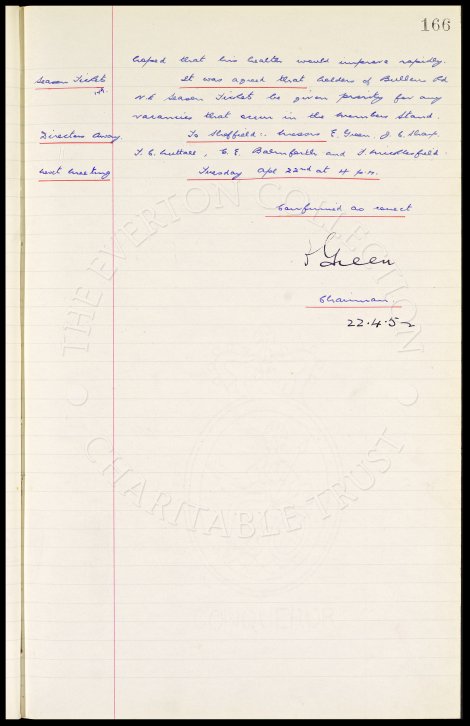 166
hoped that his health would improve rapidly.
Season Tickets
It was agreed that holders of Bullens Rd
N.E. Season Tickets be given priority for any
vacancies that occur in the Members Stand.
Directors Away.
To Sheffield:- Messrs E. Green, J. C. Sharp,
T. C. Nuttall, C. E. Balmforth and F. Micklesfield.
Next Meeting
Tuesday Apl 22nd at 4 p.m.
Confirmed as correct
Green
Chairman.
22.4.52
THE EVERTON COLLECTION
CHARITABLE TRUST
CONQUEROR